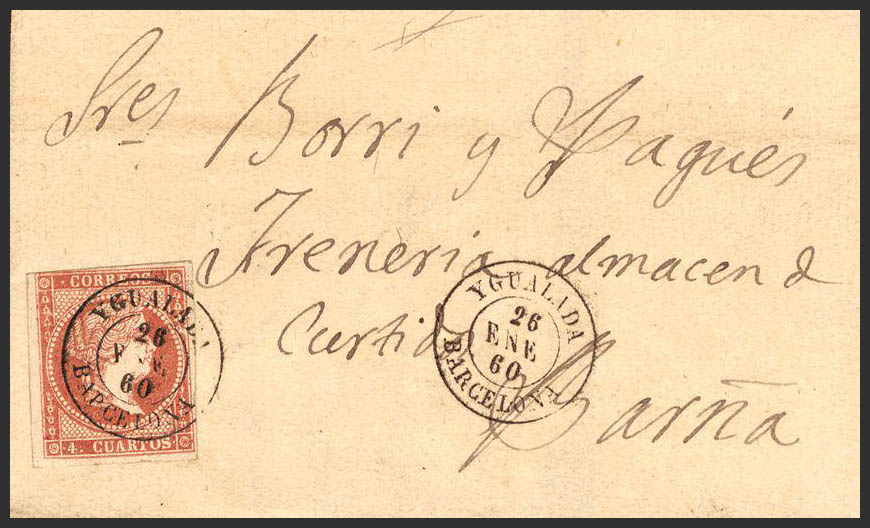 Sres Borri y Pagués
Freneria almacen d
Curtidos
Barña
CORREOS
YGUALADA
26
ENE
60
BARCELONA
4 CUARTOS
YGUALADA
26
ENE
60
BARCELONA